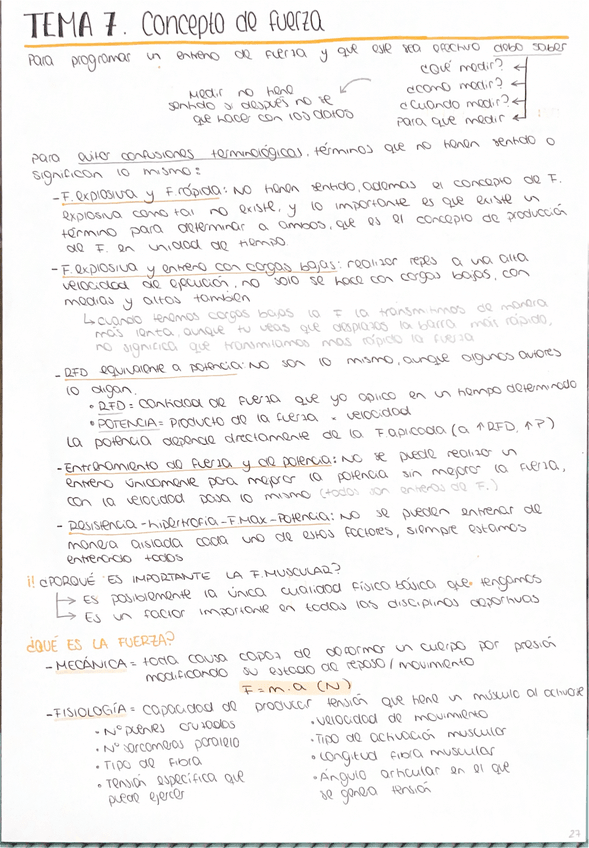 TEMA 7. Concepto de fuerza
Para programar un entreno de fuerza y que este sea efectivo debo saber
¿Qué medir?
¿Cómo medir?
¿Cuándo medir?
Para que medir
Medir no tiene
sentido si después no se
que hacer con los datos
Para evitar confusiones terminológicas, términos que no tienen sentido o
significan lo mismo:
- F. explosiva y F. rápida: No tienen sentido, además el concepto de F.
explosiva como tal no existe, y lo importante es que existe un
término para determinar a ambos, que es el concepto de producción
de F. en unidad de tiempo.
- F. explosiva y entreno con cargas bajas: realizar repes a una alta
velocidad de ejecución, no solo se hace con cargas bajas, con
medias y altas también
↳ Cuando tenemos cargas bajas la F la transmitimos de manera
más lenta, aunque tu veas que desplazas la barra más rápido,
no significa que transmitamos más rápido la fuerza
- RFD equivalente a potencia: No son lo mismo, aunque algunos autores
lo digan.
• RFD = Cantidad de fuerza que yo aplico en un tiempo determinado
• POTENCIA = Producto de la fuerza × velocidad
La potencia depende directamente de la F aplicada (a ↑RFD, ↑P)
- Entrenamiento de fuerza y de potencia: No se puede realizar un
entreno únicamente para mejorar la potencia sin mejorar la fuerza,
con la velocidad pasa lo mismo (todos son entrenos de F.)
- Resistencia - hipertrofia - F Max - Potencia: No se pueden entrenar de
manera aislada cada uno de estos factores, siempre estamos
entrenando todos
¡! ¿PORQUÉ ES IMPORTANTE LA F. MUSCULAR?
→ Es posiblemente la única cualidad física básica que tengamos
→ Es un factor importante en todas las disciplinas deportivas
¿QUÉ ES LA FUERZA?
- MECÁNICA = toda causa capaz de deformar un cuerpo por presión
modificando su estado de reposo / movimiento
F = m.a (N)
- FISIOLOGÍA = capacidad de producir tensión que tiene un músculo al activarse
• Nº puentes cruzados
• Nº sarcomeras paralelo
• Tipo de fibra
• Tensión específica que
puede ejercer
• Velocidad de movimiento
• Tipo de activación muscular
• Longitud fibra muscular
• Ángulo articular en el que
se genera tensión
27